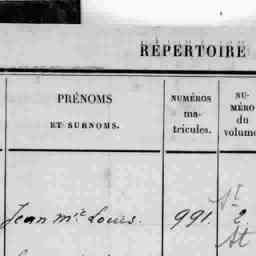 RÉPERTOIRE
PRÉNOMS
ET SURNOMS.
NUMÉROS
ma-
tricules.
NU-
MÉRO
du
volume
Jean Mie Louis. 991. 2.